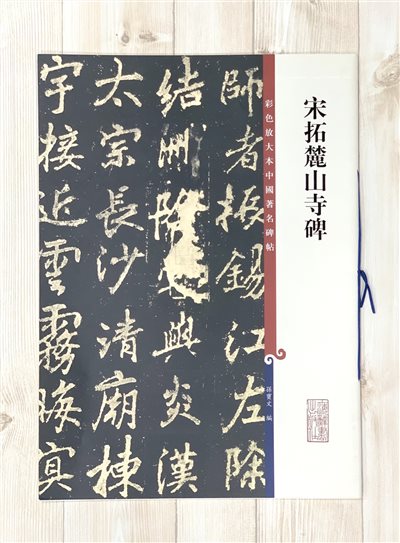 宋拓麓山寺碑
彩色放大本中國著名碑帖
孫寶文 編
師者振錫江左除
結澗陰與炎漢
太宗長沙清廟棟
宇接近雲霧晦冥